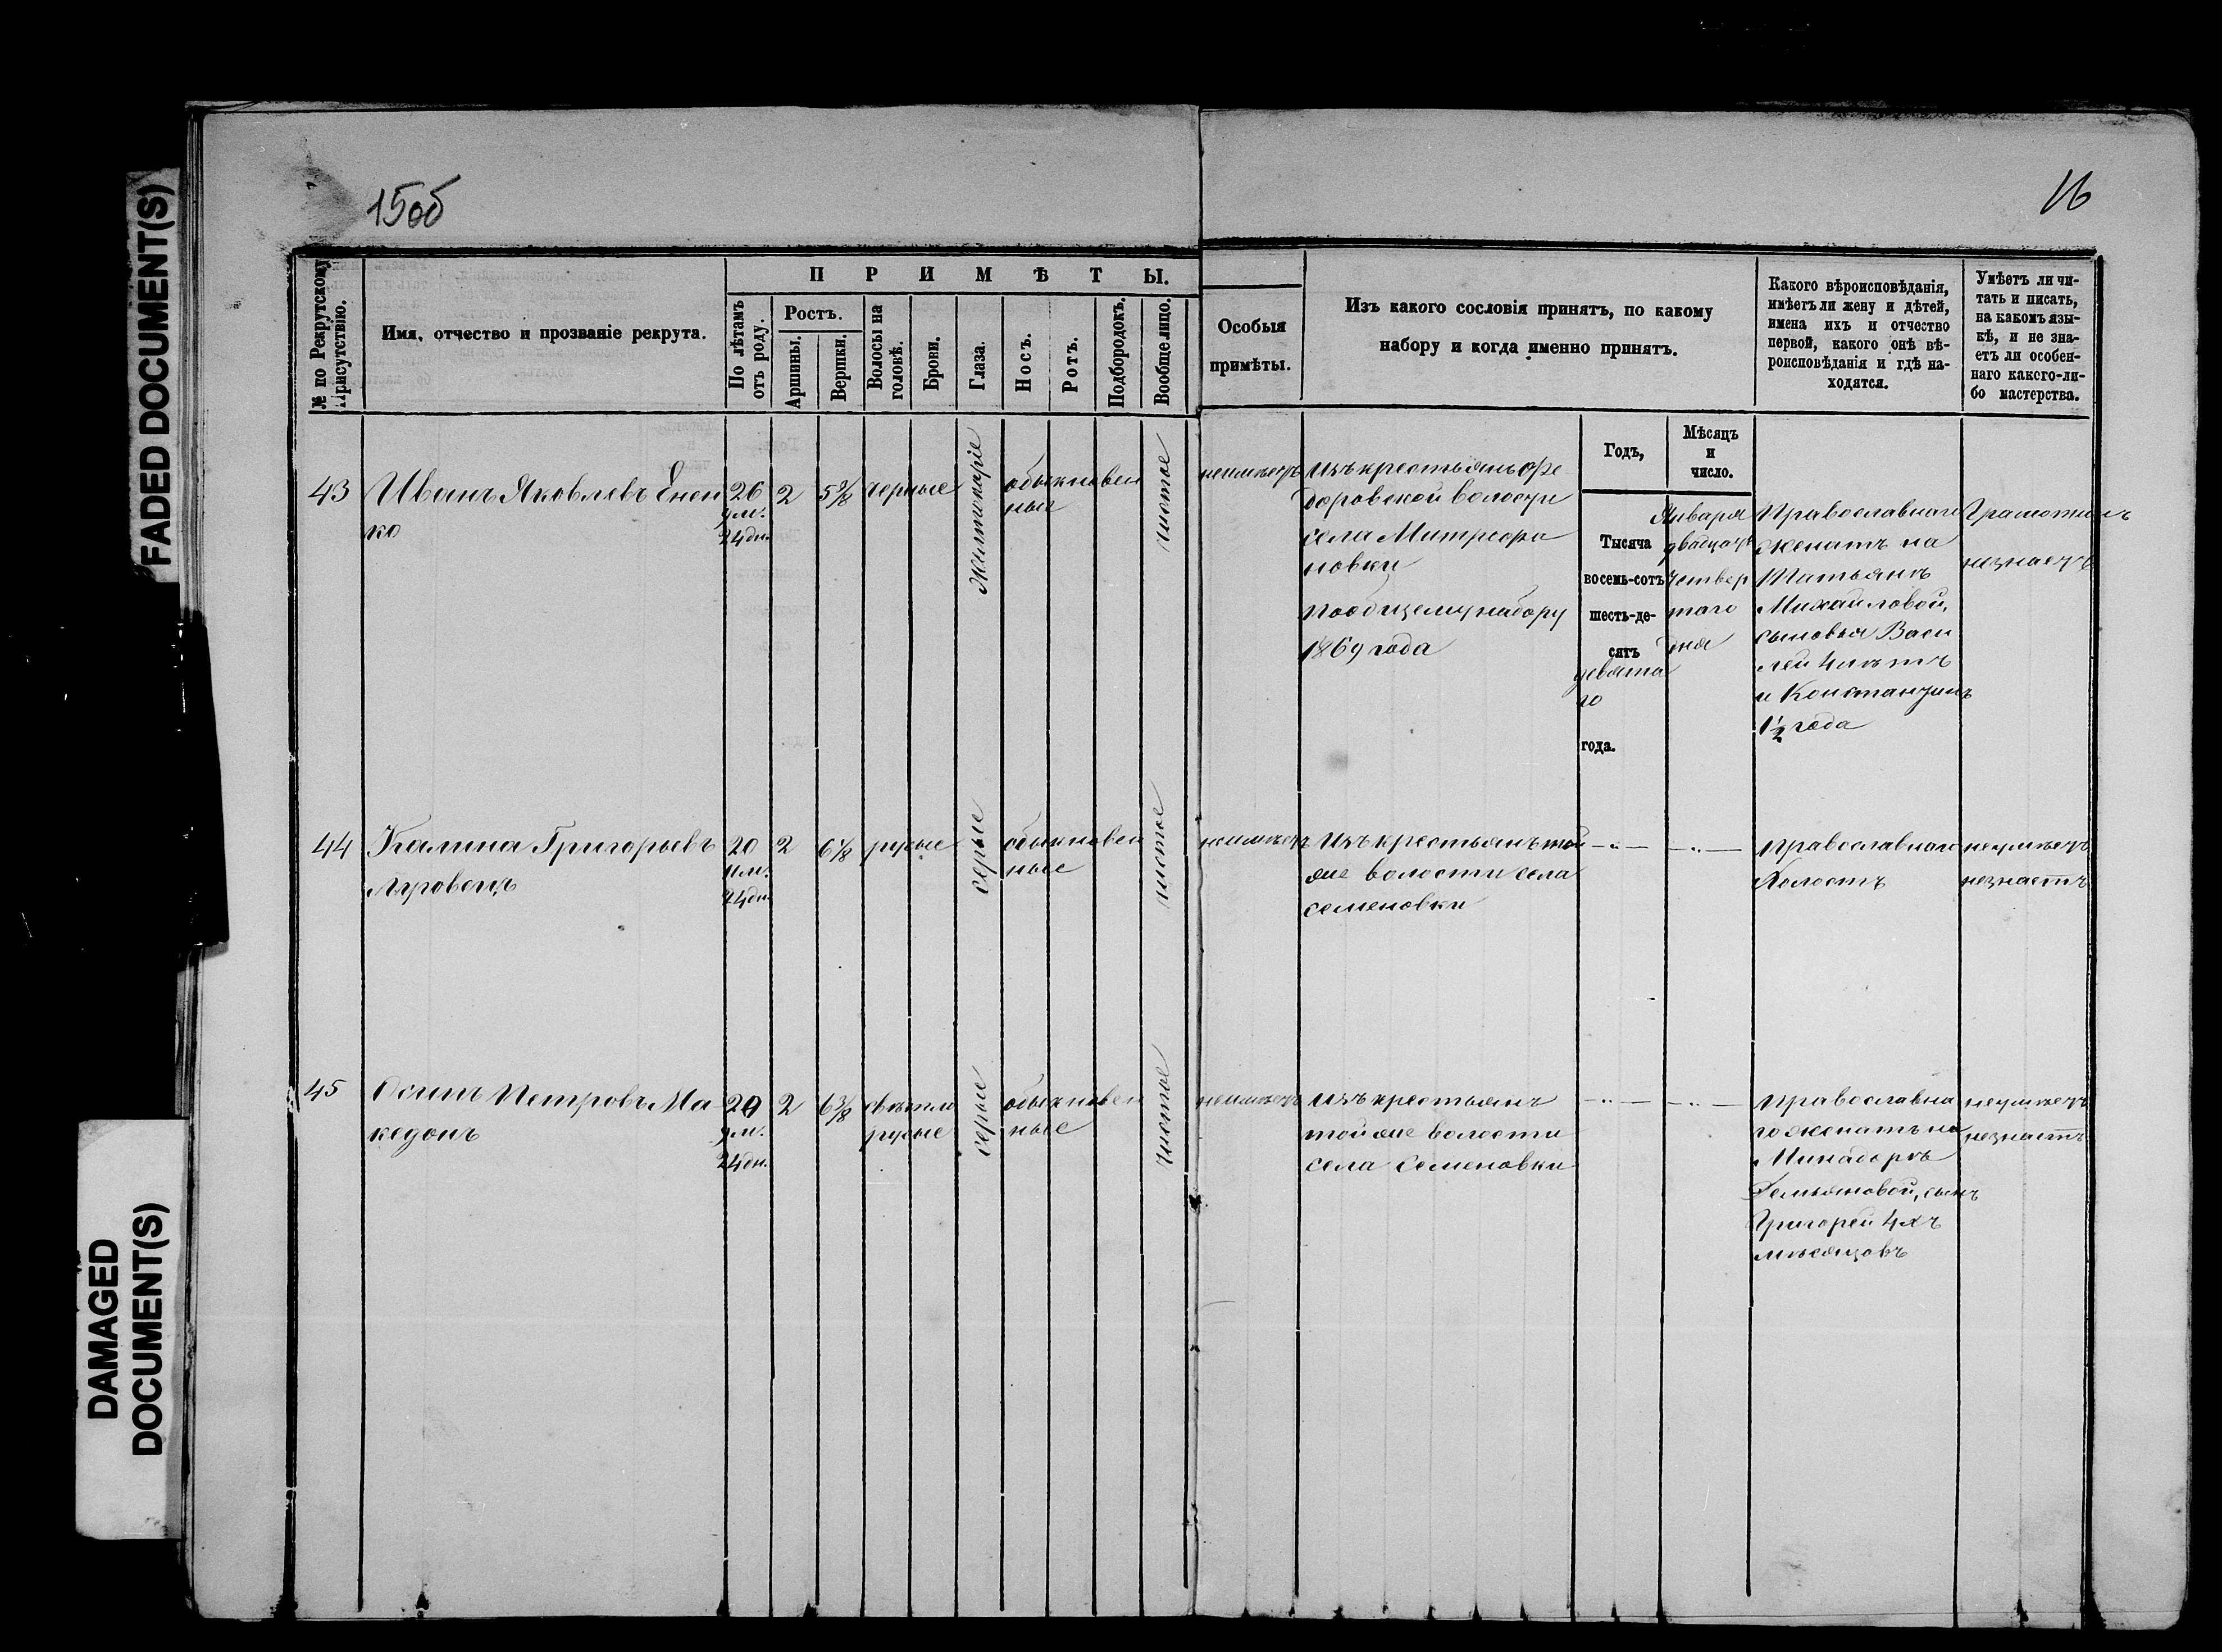 FADED DOCUMENT(S)
DAMAGED
DOCUMENT(S)
15об
16
№ по Рекрутскому
Присутствію.
Имя, отчество и прозваніе рекрута.
ПРИМѢТЫ.
По лѣтамъ
отъ роду.
Ростъ.
Аршины.
Вершки.
Волосы на
головѣ.
Брови.
Глаза.
Носъ.
Ротъ.
Подбородокъ.
Вообще лицо.
Особыя
примѣты.
Изъ какого сословія принятъ, по какому
набору и когда именно принятъ.
Какого вѣроисповѣданія,
имѣетъ ли жену и дѣтей,
имена ихъ и отчество
первой, какого онѣ вѣ-
роисповѣданія и гдѣ на-
ходятся.
Умѣетъ ли чи-
тать и писать,
на какомъ язы-
кѣ, и не зна-
етъ ли особен-
наго какого-ли-
бо мастерства.
Годъ,
Мѣсяцъ
и
число.
43
Иванъ Яковлевъ Енен
ко
26
9 м.
24 дн.
2
5 5/8
черные
Желтокаріе
обыкновен
ные
чистое
неимѣетъ
Изъ крестьянъ Фе
доровской волости
села Митрофа
новки
по общему набору
1869 года
Тысяча
восемь-сотъ
шесть-де-
сятъ
девята
го
года.
Января
двадцать
четвер
таго
дня
Православнаго
женатъ на
Татьянѣ
Михайловой,
сыновья Васи
лей 4 лѣтъ
и Константинъ
1½ года
Грамотенъ
незнаетъ
44
Калина Григорьевъ
Яровецъ
20
11 м.
24 дн.
2
6 1/8
русые
серые
обыкновен
ные
чистое
неимѣетъ
Изъ крестьянъ той
же волости села
Семеновки
— „ —
— „ —
православнаго
Холостъ
неумѣетъ
незнаетъ
45
Осипъ Петровъ Ма
кедонъ
20
9 м.
24 дн.
2
6 3/8
свѣтло
русые
серые
обыкновен
ные
чистое
неимѣетъ
Изъ крестьянъ
той же волости
села Семеновки
— „ —
— „ —
православна
го женатъ на
Минадорѣ
Демьяновой, сынъ
Григорей 4хъ
мѣсяцовъ
неумѣетъ
незнаетъ